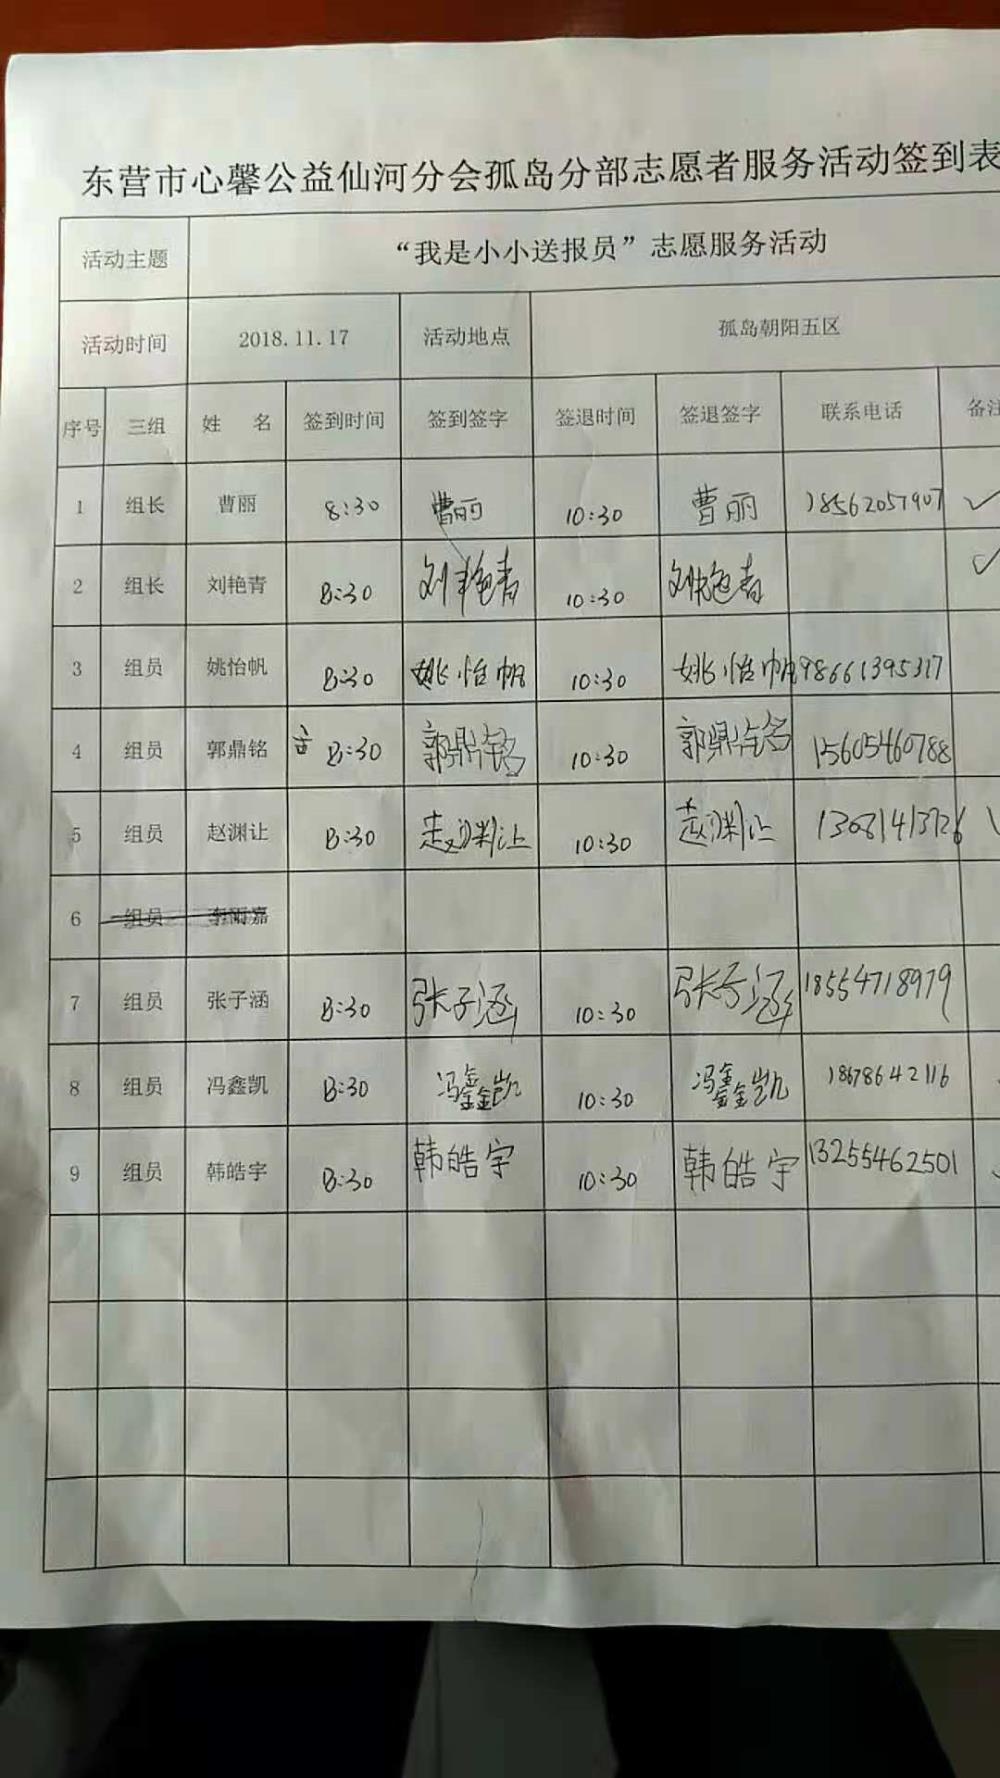 东营市心馨公益仙河分会孤岛分部志愿者服务活动签到表
活动主题 “我是小小送报员”志愿服务活动
活动时间 2018.11.17 活动地点 孤岛朝阳五区
序号 三组 姓 名 签到时间 签到签字 签退时间 签退签字 联系电话 备注
1 组长 曹丽 8:30 曹丽 10:30 曹丽 18562057907 ✓
2 组长 刘艳青 8:30 刘艳青 10:30 刘艳青 ✓
3 组员 姚怡帆 8:30 姚怡帆 10:30 姚怡帆 98661395317
4 组员 郭鼎铭 8:30 郭鼎铭 10:30 郭鼎铭 15605460788
5 组员 赵渊让 8:30 赵渊让 10:30 赵渊让 13081413726
6 组员
7 组员 张子涵 8:30 张子涵 10:30 张子涵 18554718979
8 组员 冯鑫凯 8:30 冯鑫凯 10:30 冯鑫凯 18678642116
9 组员 韩皓宇 8:30 韩皓宇 10:30 韩皓宇 13255462501